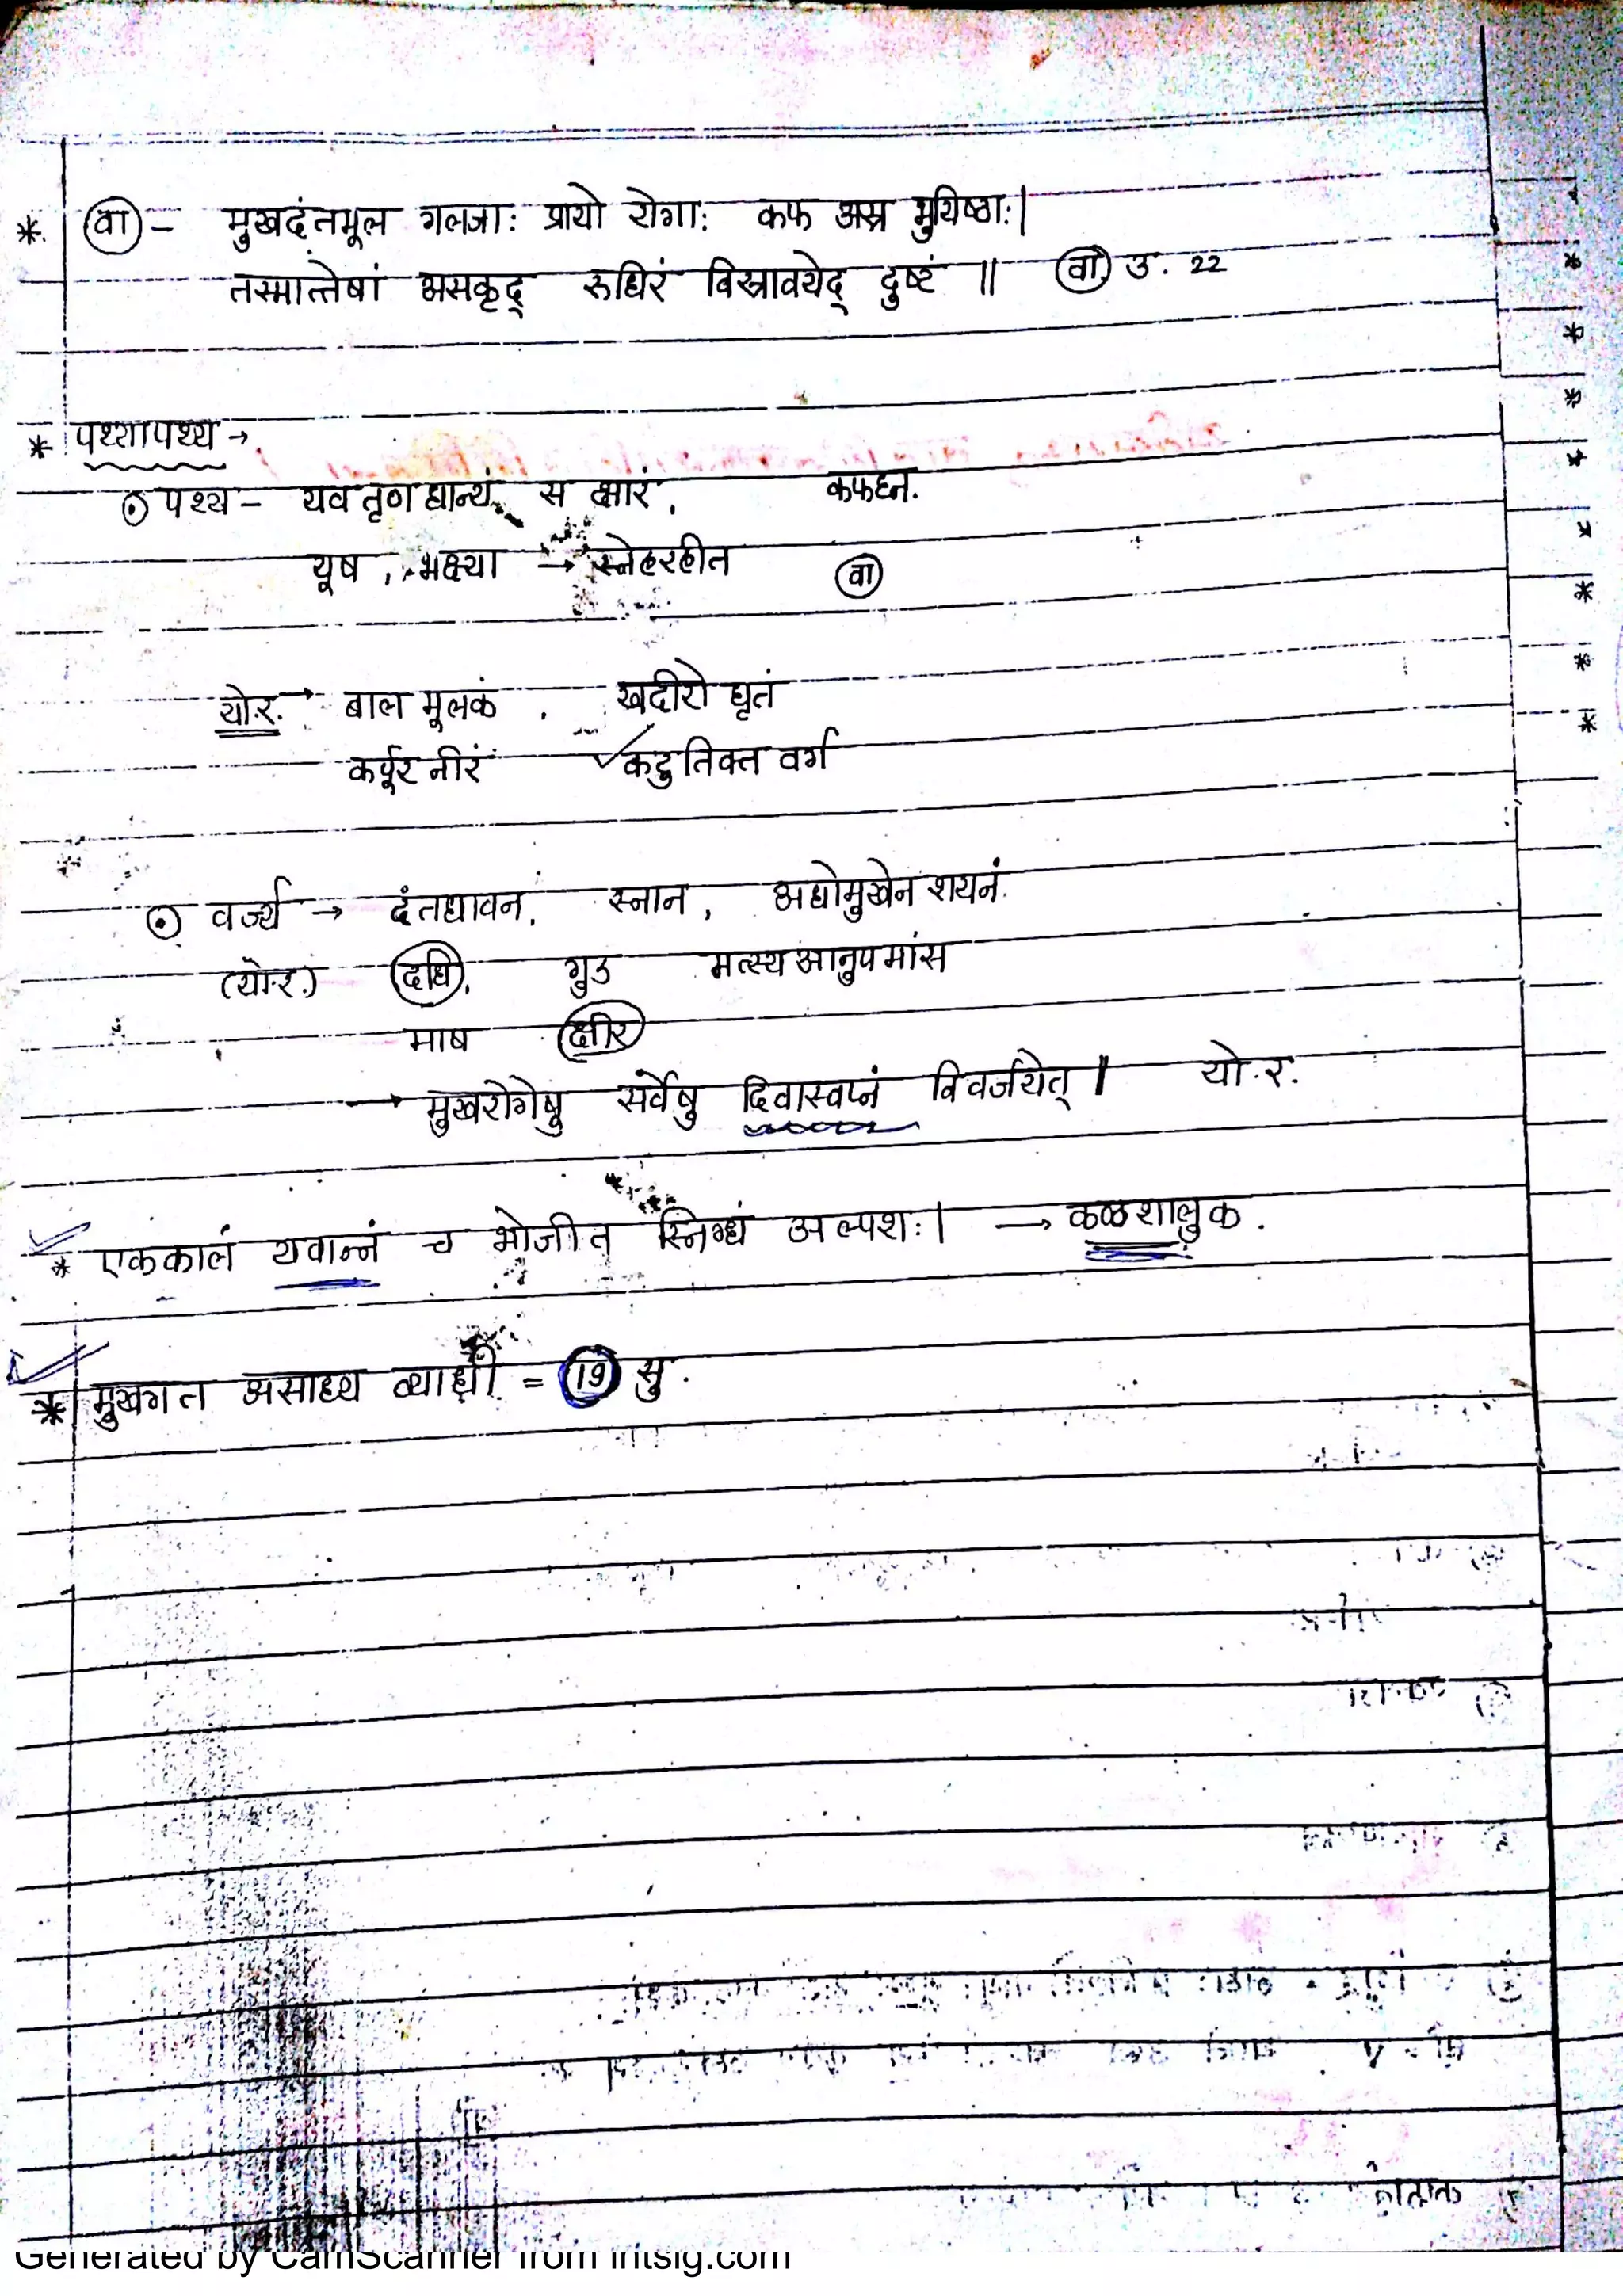 * (वा) - मुखदंतमूल गलजाः प्रायो रोगाः कफ अस्र भुयिष्ठाः।
तस्मात्तेषां असकृद् रुधिरं विस्रावयेद् दुष्टं ॥ (वा.) उ. 22
* पथ्यापथ्य →
⊙ पथ्य - यव तृण धान्यं, स क्षारं, कफघ्न.
यूष, भक्ष्या → स्नेहरहीत (वा)
यो.र. → बाल मूलकं, खदीरो घृतं
कर्पूर नीरं ✓कटु तिक्त वर्ग
⊙ वर्ज्य → दंतधावन, स्नान, अधोमुखेन शयनं.
(यो.र.) (दधि), गुड मत्स्य आनुप मांस
माष (क्षीर)
→ मुखरोगेषु सर्वेषु दिवास्वप्नं विवर्जयेत् । यो.र.
* एककालं यवान्नं च भोजीत स्निग्धं अल्पशः। → कळशालुक.
* मुखगत असाध्य व्याधी = (19) सु.
Generated by CamScanner from intsig.com